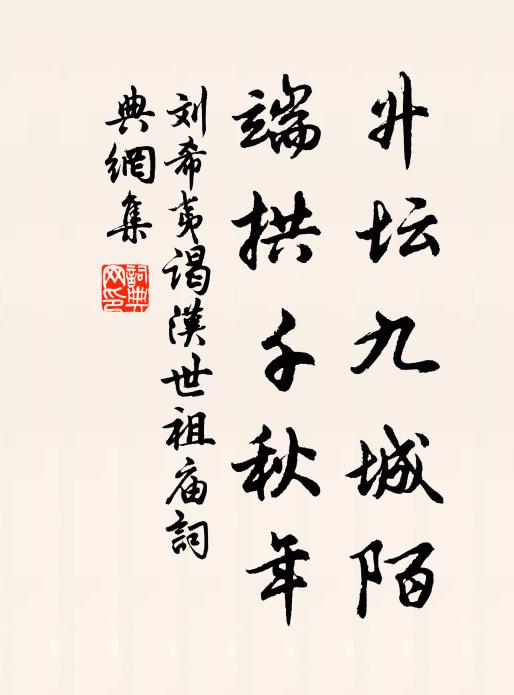 升坛九城陌
端拱千秋年
刘希夷谒漢世祖庙詞
典網集
詞典网印